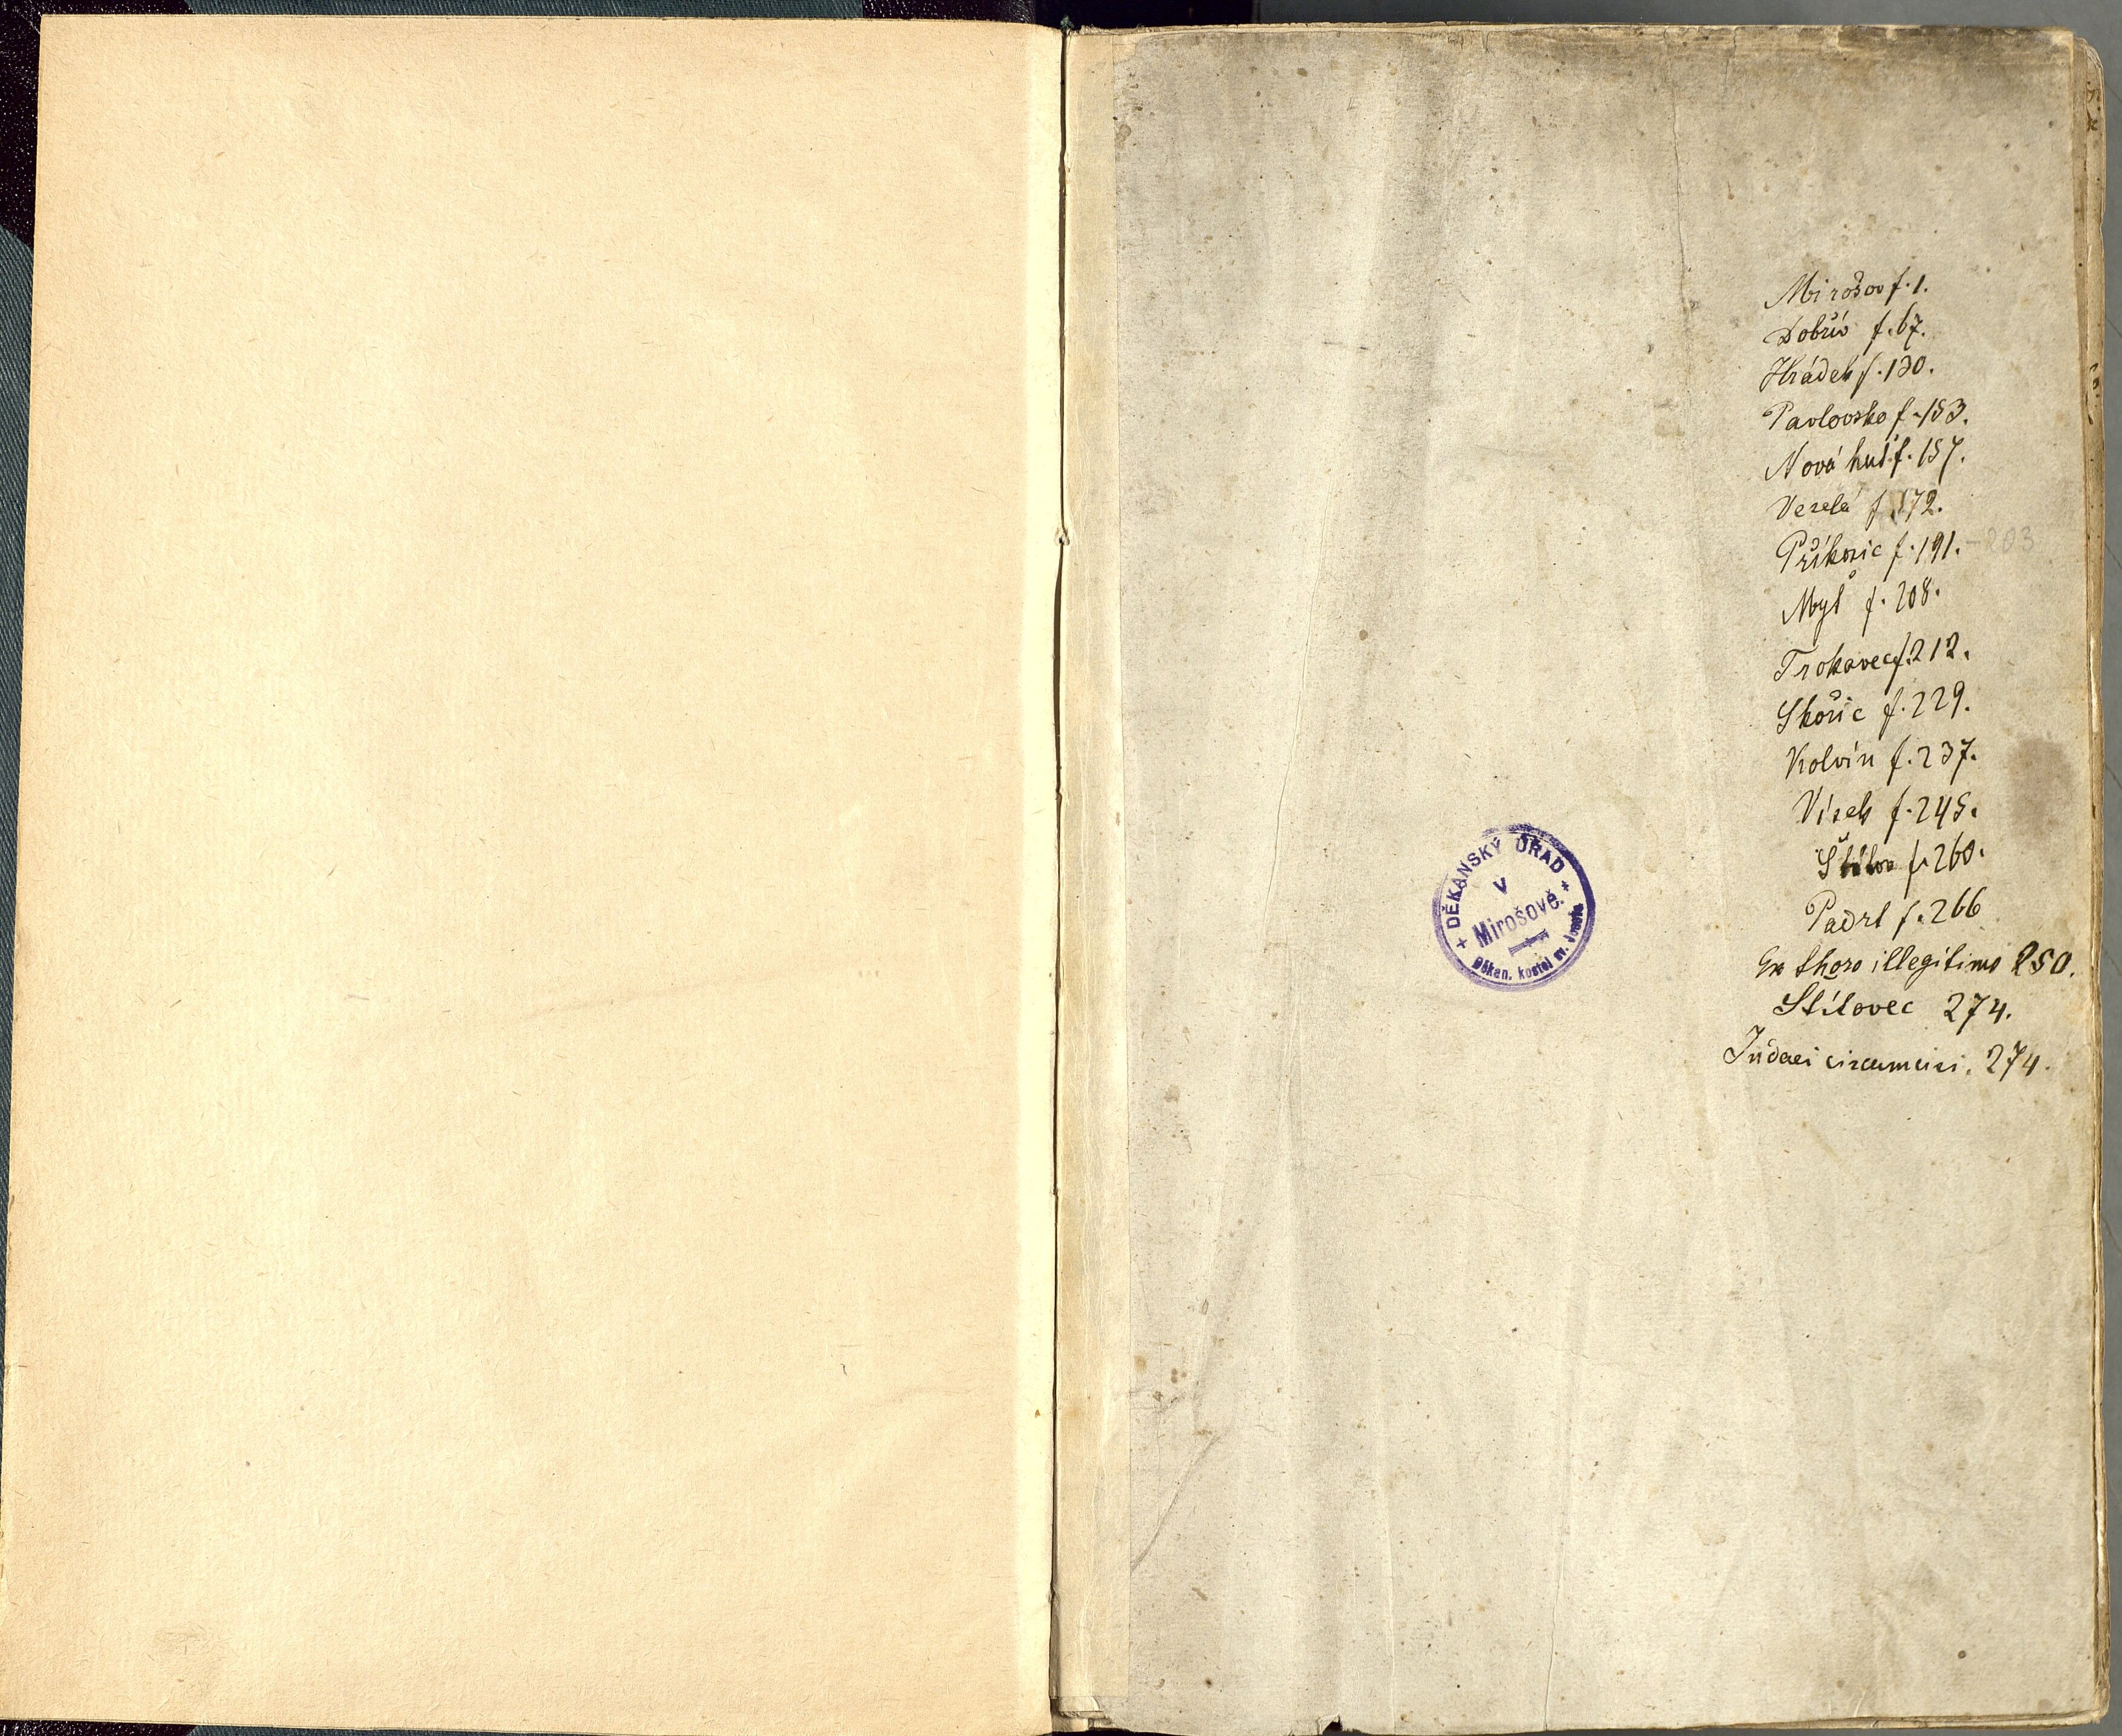 Mirošov f. 1.
Dobřív f. 67.
Hrádek f. 130.
Pavlovsko f. 153.
Nová huť f. 157.
Veselá f. 172.
Příkosic f. 191. - 203
Myť f. 208.
Trokavec f. 212.
Skořic f. 229.
Kolvín f. 237.
Vísek f. 245.
f. 260.
Padrť f. 266
Ex thoro illegitimo 250.
Štítovec 274.
Judaei circumcisi. 274.
+ DĚKANSKÝ ÚŘAD +
v
Mirošově.
Děkan. kostel sv. Josefa.